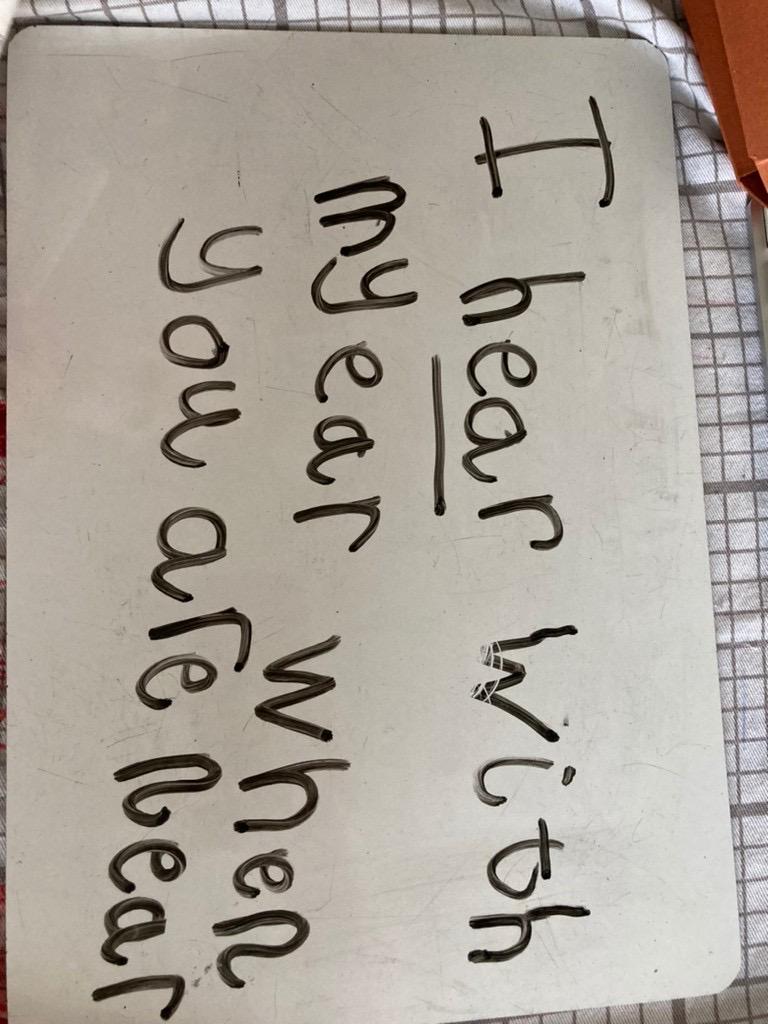 I hear with
my ear when
you are near